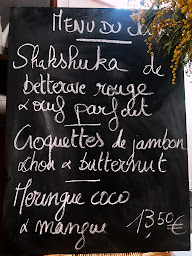 MENU DU JOUR
Shakshuka de
betterave rouge
& œuf parfait
Croquettes de jambon
chou & butternut
Meringue coco
& mangue 13,50€